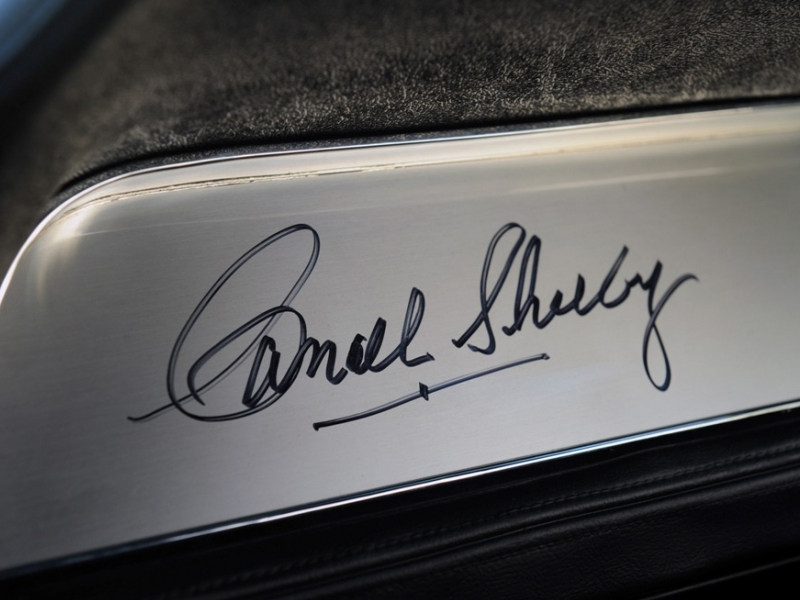 Carroll Shelby